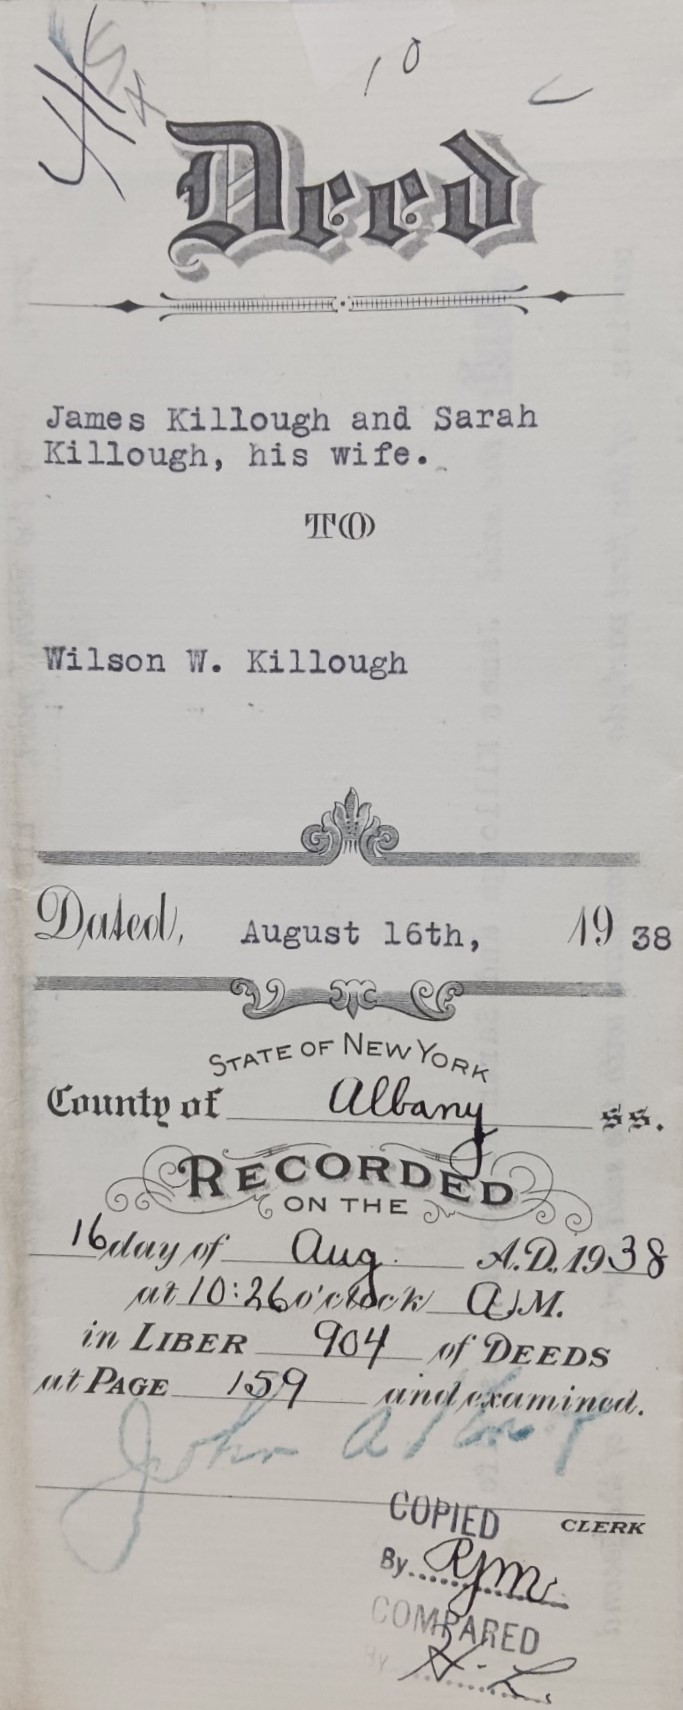 10
Deed
James Killough and Sarah
Killough, his wife.
TO
Wilson W. Killough
Dated, August 16th, 1938
STATE OF NEW YORK
County of Albany ss.
RECORDED
ON THE
16 day of Aug. A.D. 1938
at 10:26 o'clock A.M.
in LIBER 904 of DEEDS
at PAGE 159 and examined.
John A
CLERK
COPIED
By RJM
COMPARED
By H. L.